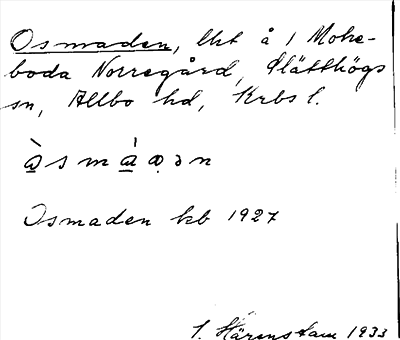 Osmaden, lht å 1 Mohe-
boda Norregård, Slätthögs
sn, Allbo hd, Krbs l.
Osmaden kb 1927
Härenstam 1933